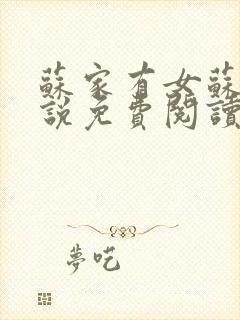 蘇家有女蘇
說免費閱讀
夢吃